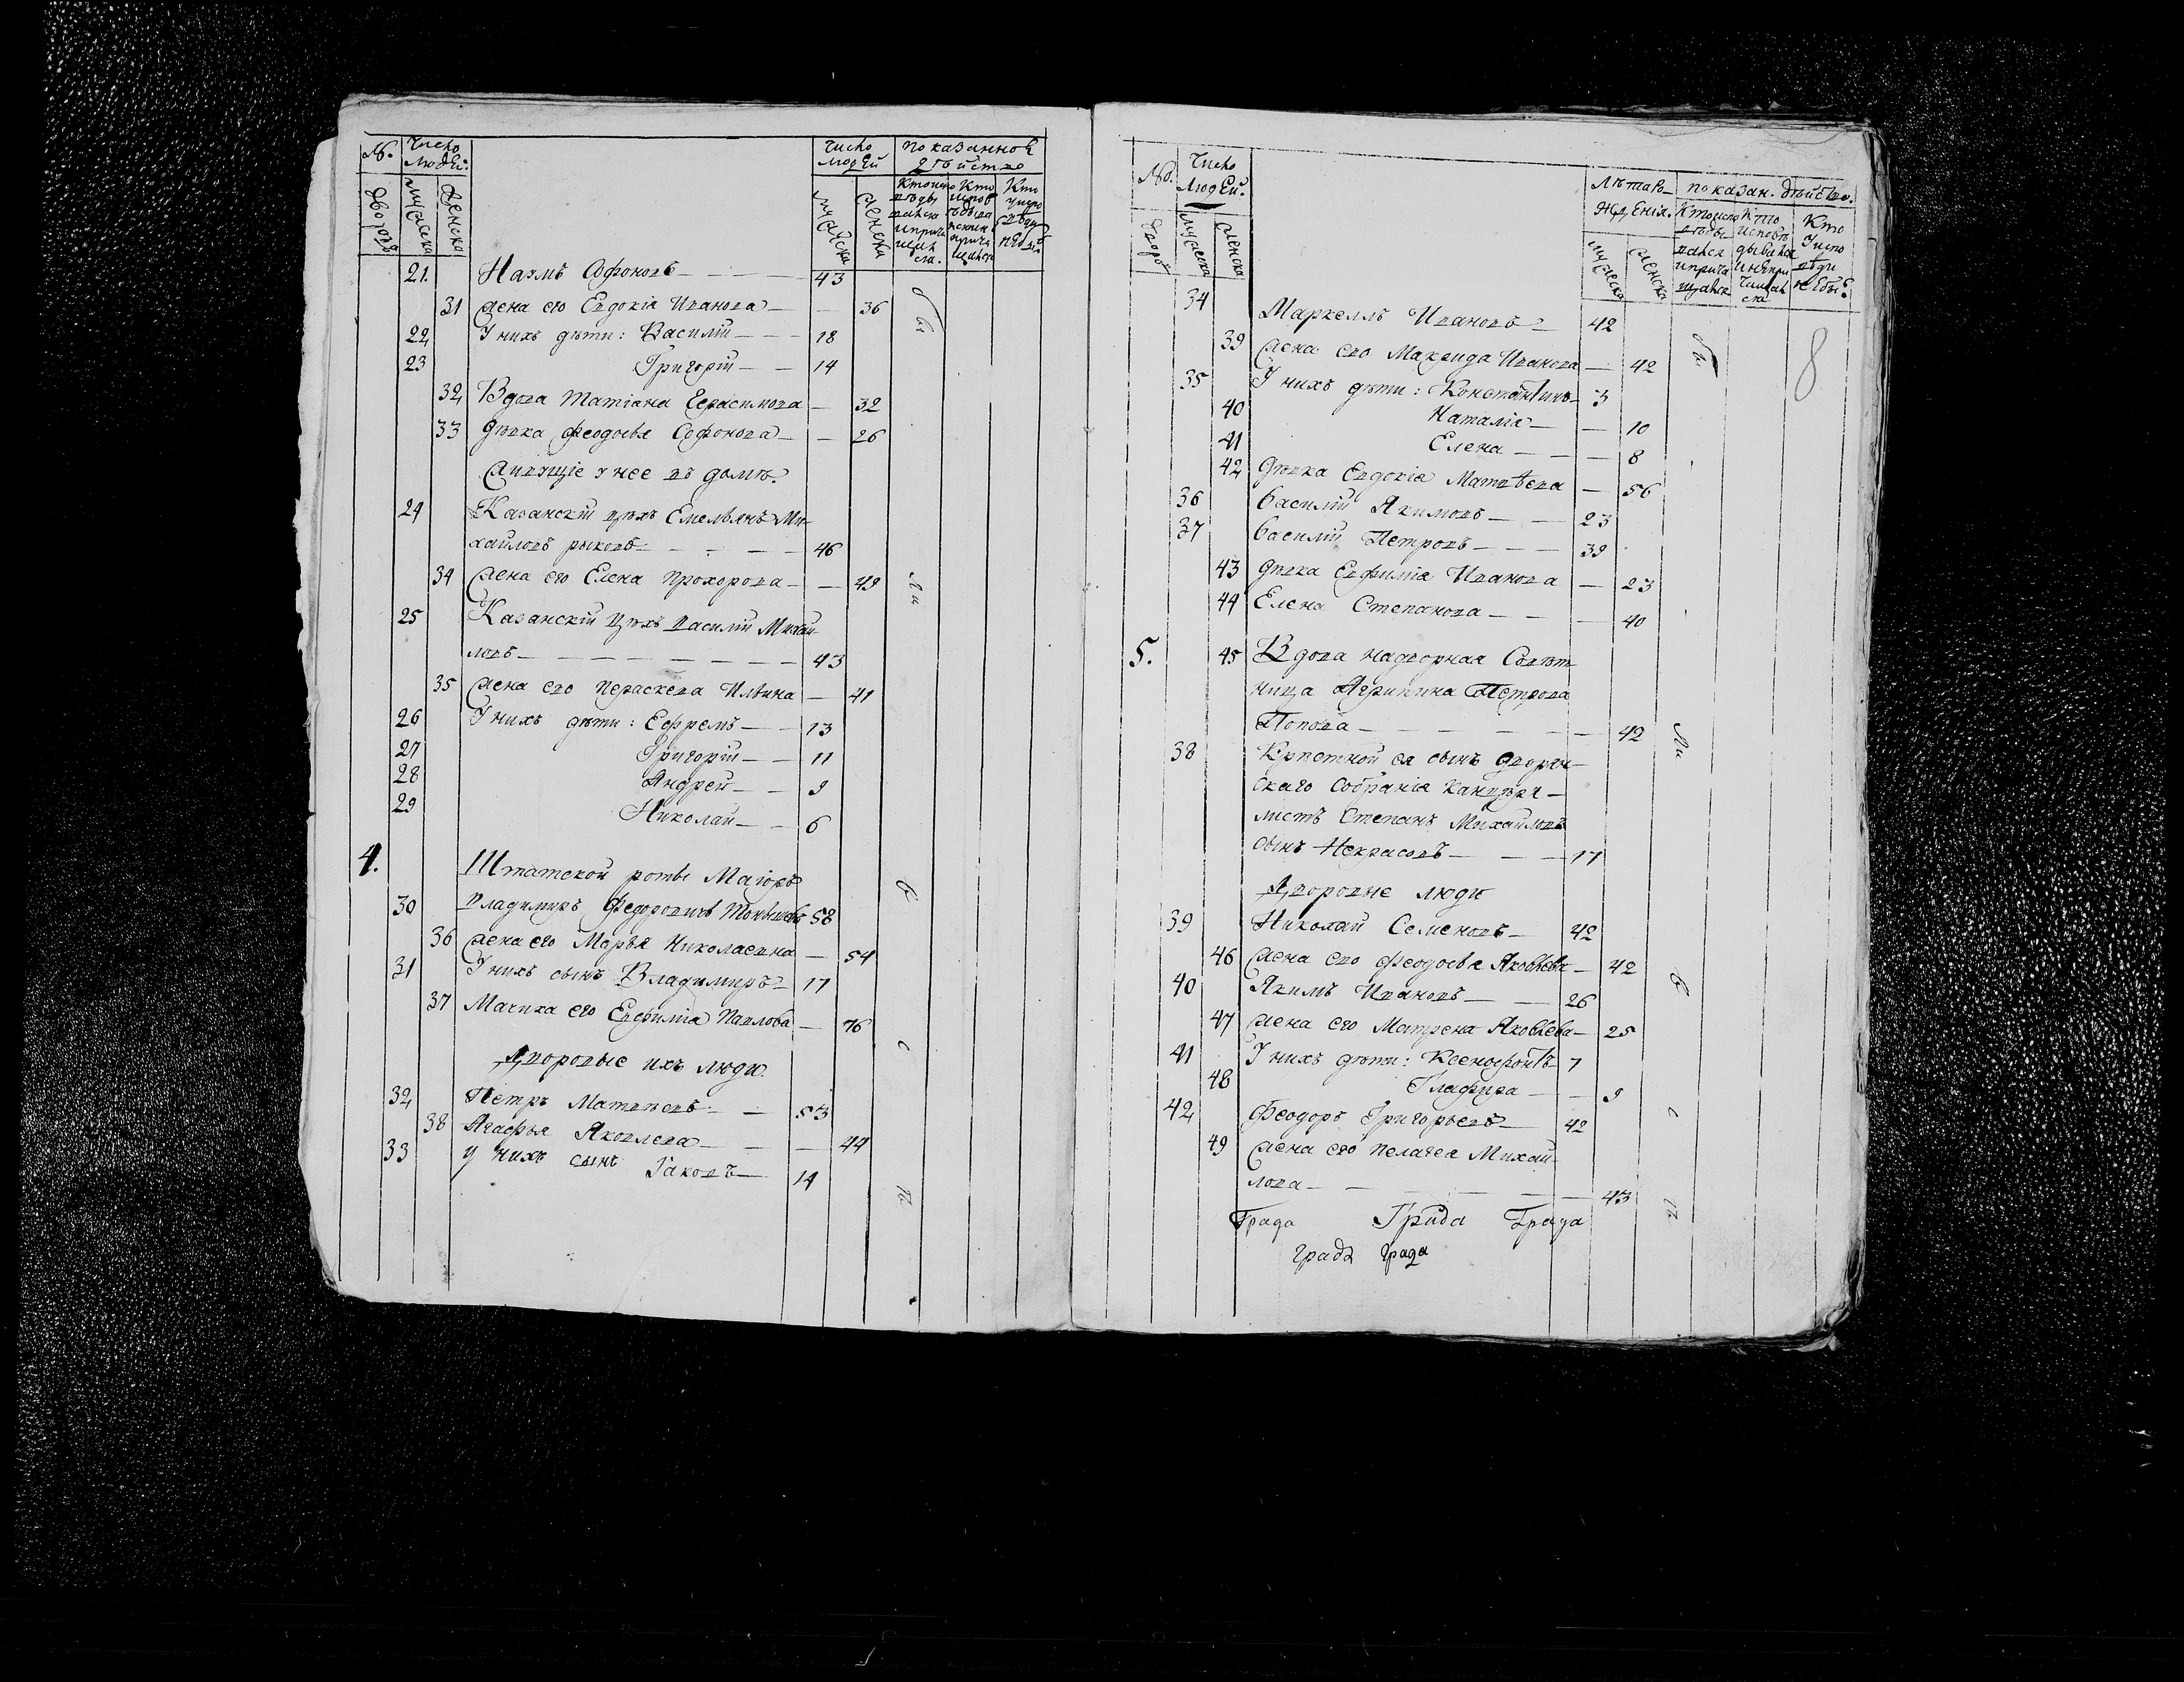 №. Число людей. Число людей показанное действо
дворовъ мужеска женска мужеска женска Кто исповѣдывался и причащался. Кто исповѣдывался а не причащался Кто у исповѣди не былъ
21. Наумъ Софоновъ — 43
31 жена его Евдокія Иванова — 36
22 У нихъ дѣти: Василій — 18
23 Григорій — 14
32 Вдова Татіана Герасимова — 32
33 дѣвка Феодосья Софонова — 26
живущіе у нее въ домѣ.
24 Казанскій цѣхъ Емельянъ Ми-
хайловъ рыковъ — 46
34 жена его Елена Прохорова — 49
25 Казанскій цѣхъ Василій Михай-
ловъ — 43
35 жена его Пераскева Ильина — 41
26 У нихъ дѣти: Ефремъ — 13
27 Григорій — 11
28 Андрей — 9
29 Николай — 6
4. Штатской роты Маіоръ
30 Владимиръ Федоровичъ 58
36 жена его Марья Николаевна — 54
31 У нихъ сынъ Владимиръ — 17
37 Мачиха его Евфимія Павлова — 76
Дворовые ихъ люди.
32 Петръ Матвѣевъ — 53
38 Агафья Яковлева — 44
33 У нихъ сынъ Іаковъ — 14
были
въ
с
п
№. Число людей. Лѣта рождения. показан. действо.
дворов мужеска женска мужеска женска Кто исповѣдывался и причащался Кто исповѣдывался и не причащался Кто у исповѣди не былъ.
8
34 Маркеллъ Ивановъ — 42
39 жена его Макрида Иванова — 42
35 У нихъ дѣти: Константинъ — 3
40 Наталіа — 10
41 Елена — 8
42 дѣвка Евдокіа Матвѣева — 56
36 Василій Якимовъ — 23
37 Василій Петровъ — 39
43 дѣвка Евфиміа Иванова — 23
44 Елена Степанова — 40
5. 45 Вдова надворная Совѣт-
ница Агрипина Петрова
Попова — 42
38 Крестной ея сынъ дворян-
скаго Собранія канцеля-
листъ Степанъ Михайловъ
сынъ Некрасовъ — 17
Дворовые люди
39 Николай Семеновъ — 42
46 жена его Феодосья Яковлева — 42
40 Якимъ Ивановъ — 26
47 жена его Матрена Яковлева — 25
41 У нихъ дѣти: Ксенофонтъ — 7
48 Глафира — 9
42 Феодоръ Григорьевъ — 42
49 жена его Пелагея Михай-
лова — 43
Града Града Града
града града
были
въ
с
п